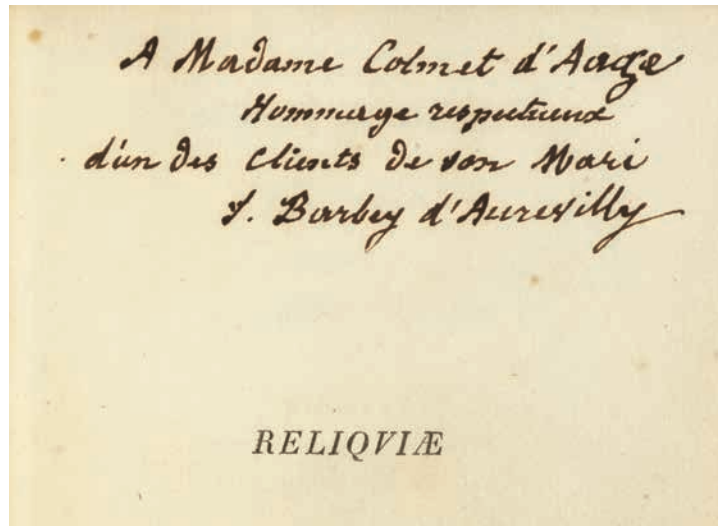 A Madame Colmet d'Aage
Hommage respectueux
d'un des Clients de son Mari
J. Barbey d'Aurevilly
RELIQVIÆ